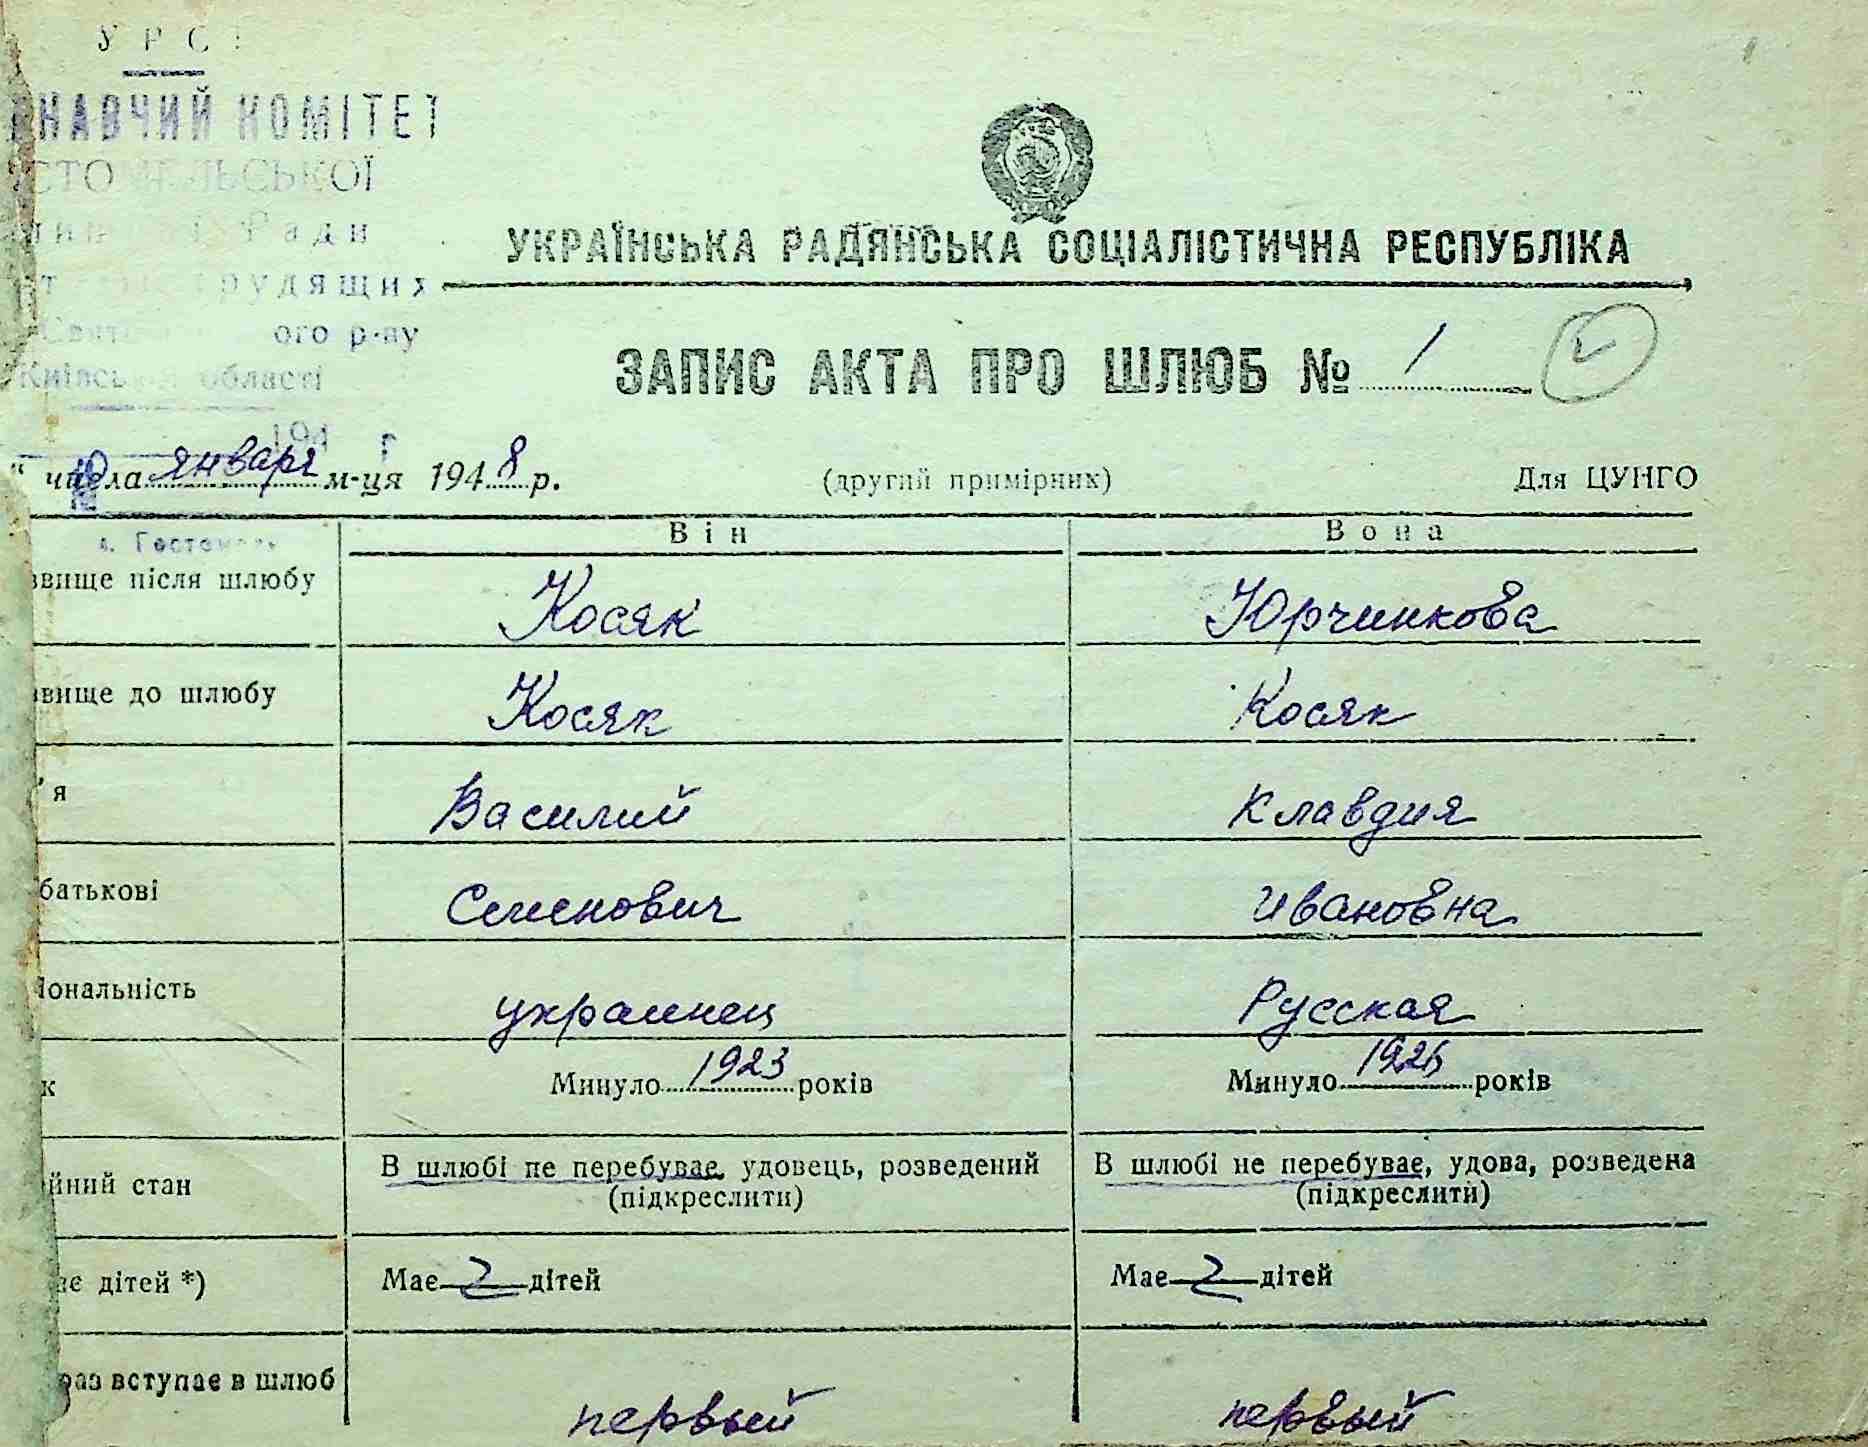 У Р С
НАВЧИЙ КОМІТЕТ
СТОМЕЛЬСЬКОЇ
Ради
трудящих
ого р-ну
Київської області
194 р
УКРАЇНСЬКА РАДЯНСЬКА СОЦІАЛІСТИЧНА РЕСПУБЛІКА
ЗАПИС АКТА ПРО ШЛЮБ № 1
" числа января м-ця 1948 р.
(другий примірник)
Для ЦУНГО
Він
Вона
звище після шлюбу
Косяк
Юрчинкова
звище до шлюбу
Косяк
Косяк
'я
Василий
Клавдия
батькові
Семенович
Ивановна
іональність
украинец
Русская
к
Минуло 1923 років
Минуло років
йний стан
В шлюбі не перебуває, удовець, розведений
(підкреслити)
В шлюбі не перебуває, удова, розведена
(підкреслити)
ає дітей *)
Має 2 дітей
Має 2 дітей
раз вступає в шлюб
первый
первый